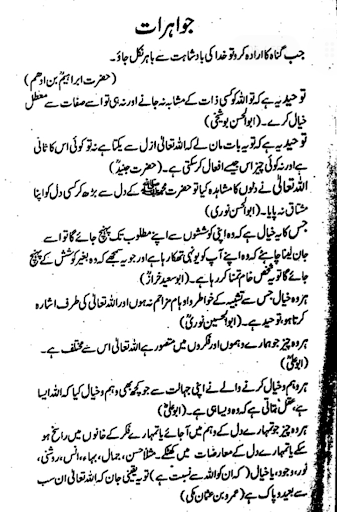 جواہرات
جب گناہ کا ارادہ کرو تو خدا کی بادشاہت سے باہر نکل جاؤ۔
(حضرت ابراہیم بن ادھم)
توحید یہ ہے کہ تو اللہ کو کسی ذات کے مشابہ نہ جانے اور نہ ہی تو اسے صفات سے معطل
خیال کرے۔ (ابوالحسن بوشنجی)
توحید یہ ہے کہ تو یہ بات مان لے کہ اللہ تعالیٰ ازل سے یکتا ہے نہ تو کوئی اس کا ثانی
ہے اور نہ کوئی چیز اس جیسے افعال کر سکتی ہے۔ (حضرت جنید)
اللہ تعالیٰ نے دلوں کا مشاہدہ کیا تو حضرت محمد ﷺ کے دل سے بڑھ کر کسی دل کو اپنا
مشتاق نہ پایا۔ (ابوالحسن نوری)
جس کا یہ خیال ہے کہ وہ اپنی کوششوں سے اپنے مطلوب تک پہنچ جائے گا تو اسے
جان لینا چاہئے کہ وہ اپنے آپ کو یونہی تھکا رہا ہے اور جو یہ سمجھے کہ وہ بغیر کوشش کے پہنچ
جائے گا تو یہ شخص خام تمنا کر رہا ہے۔ (ابو سعید خراز)
ہر وہ خیال جس سے تشبیہ کے خواطر و اوہام مزاحم نہ ہوں اور اللہ تعالیٰ کی طرف اشارہ
کرتا ہو، توحید ہے۔ (ابوالحسین نوری)
ہر وہ چیز جو ہمارے وہموں اور فکروں میں متصور ہے اللہ تعالیٰ اس سے مختلف ہے۔
(ابو علی)
ہر وہم و خیال کرنے والے نے اپنی جہالت سے جو کچھ بھی وہم و خیال کیا کہ اللہ ایسا
ہے، عقل بتاتی ہے کہ وہ ویسا ہی ہے۔ (ابو علی)
ہر وہ چیز جو تمہارے دل کے وہم میں آ جائے یا تمہارے فکر کے خانوں میں راسخ ہو
سکے یا تمہارے دل کے معارضات میں کھٹکے۔ مثلاً حسن، جمال، بہاء، انس، روشنی،
نور، وجود، یا خیال (کہ ان کو اللہ سے نسبت ہے) تو یہ یقینی جان کہ اللہ تعالیٰ ان سب
سے بعید و پاک ہے (عمرو بن عثمان مکی)